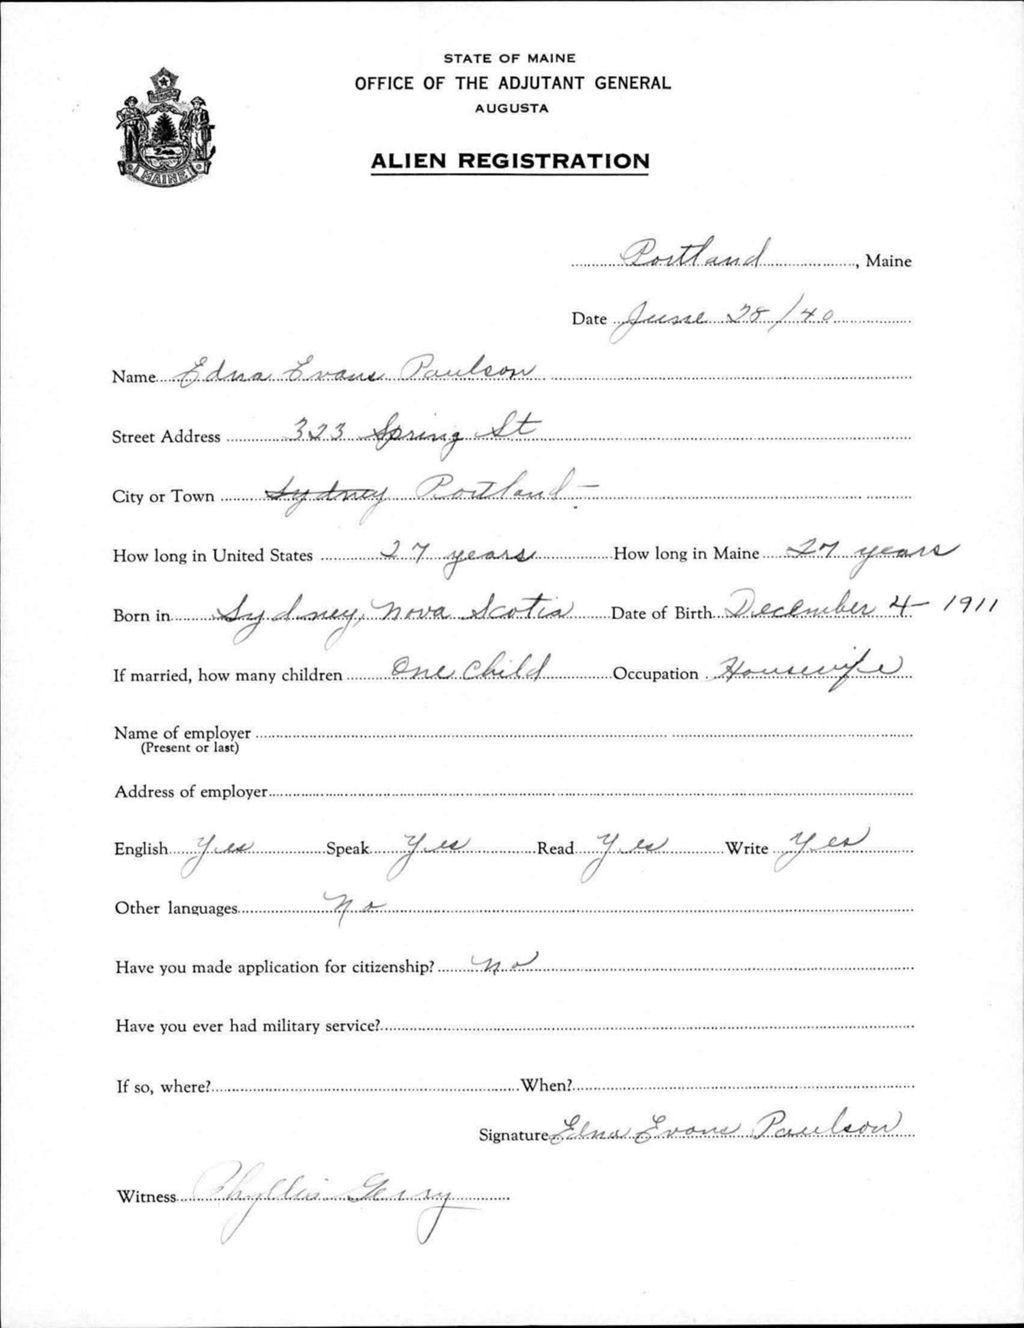 STATE OF MAINE
OFFICE OF THE ADJUTANT GENERAL
AUGUSTA
ALIEN REGISTRATION
MAINE
Portland, Maine
Date June 28/40
Name Edna Evans Paulson
Street Address 323 Spring St
City or Town Sydney Portland -
How long in United States 27 years How long in Maine 27 years
Born in Sydney, Nova Scotia Date of Birth December 4 - 1911
If married, how many children One Child Occupation Housewife
Name of employer
(Present or last)
Address of employer
English Yes Speak Yes Read Yes Write Yes
Other languages No
Have you made application for citizenship? No
Have you ever had military service?
If so, where? When?
Signature Edna Evans Paulson
Witness Phyllis Gerry